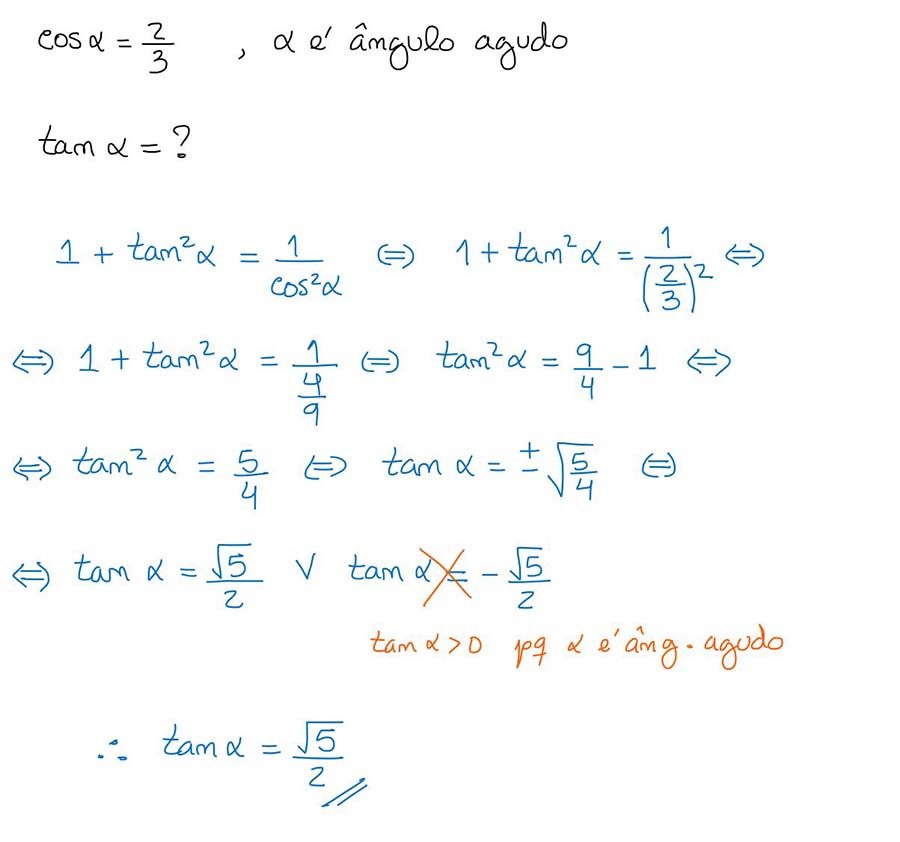 cos α = 2/3 , α é ângulo agudo
tan α = ?
1 + tan²α = 1/cos²α ⇔ 1 + tan²α = 1/(2/3)² ⇔
⇔ 1 + tan²α = 1/(4/9) ⇔ tan²α = 9/4 - 1 ⇔
⇔ tan²α = 5/4 ⇔ tan α = ±√(5/4) ⇔
⇔ tan α = √5/2 ∨ tan α = -√5/2
tan α > 0 pq α é âng. agudo
∴ tan α = √5/2